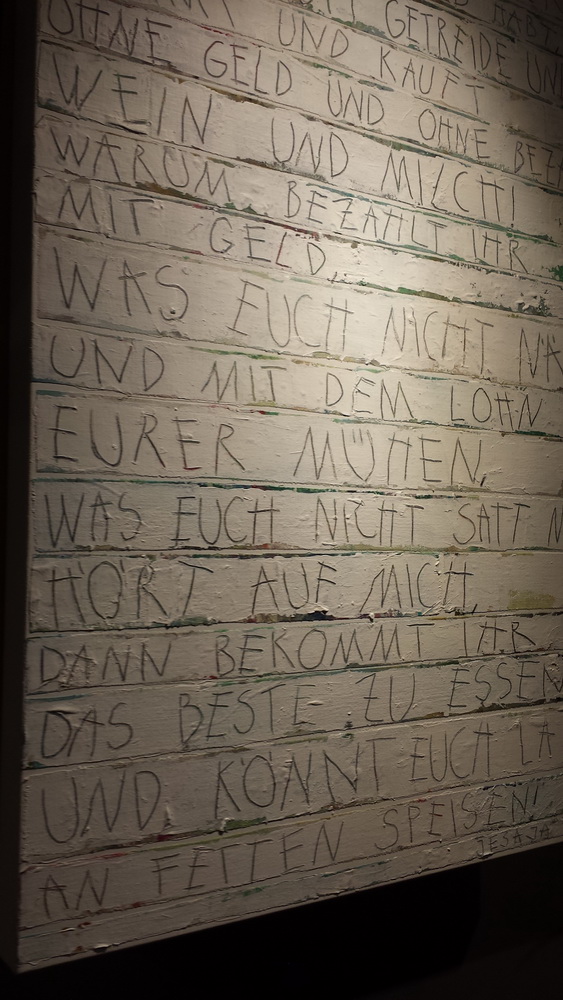 HABT,
GETREIDE UN
OHNE UND KAUFT
GELD UND OHNE BEZA
WEIN UND MILCH!
WARUM BEZAHLT IHR
MIT GELD,
WAS EUCH NICHT NÄ
UND MIT DEM LOHN
EURER MÜHEN,
WAS EUCH NICHT SATT M
HÖRT AUF MICH,
DANN BEKOMMT IHR
DAS BESTE ZU ESSEN
UND KÖNNT EUCH LA
AN FETTEN SPEISEN!
JESAJA